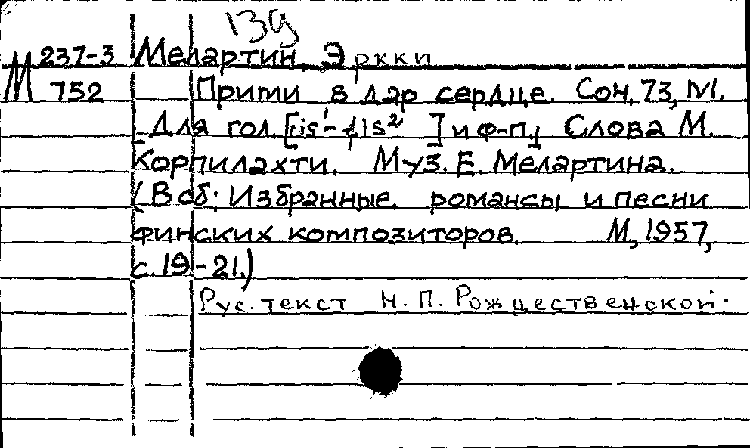 13д
М 237-3 Мелартин, Эркки
752 Прими в дар сердце. Соч. 73, №1.
Для гол. [cis¹-fis² ] и ф-п. Слова М.
Корпилахти. Муз. Е. Мелартина.
(В сб: Избранные романсы и песни
финских композиторов. М, 1957,
с. 19-21.)
Рус. текст Н. П. Рождественской.